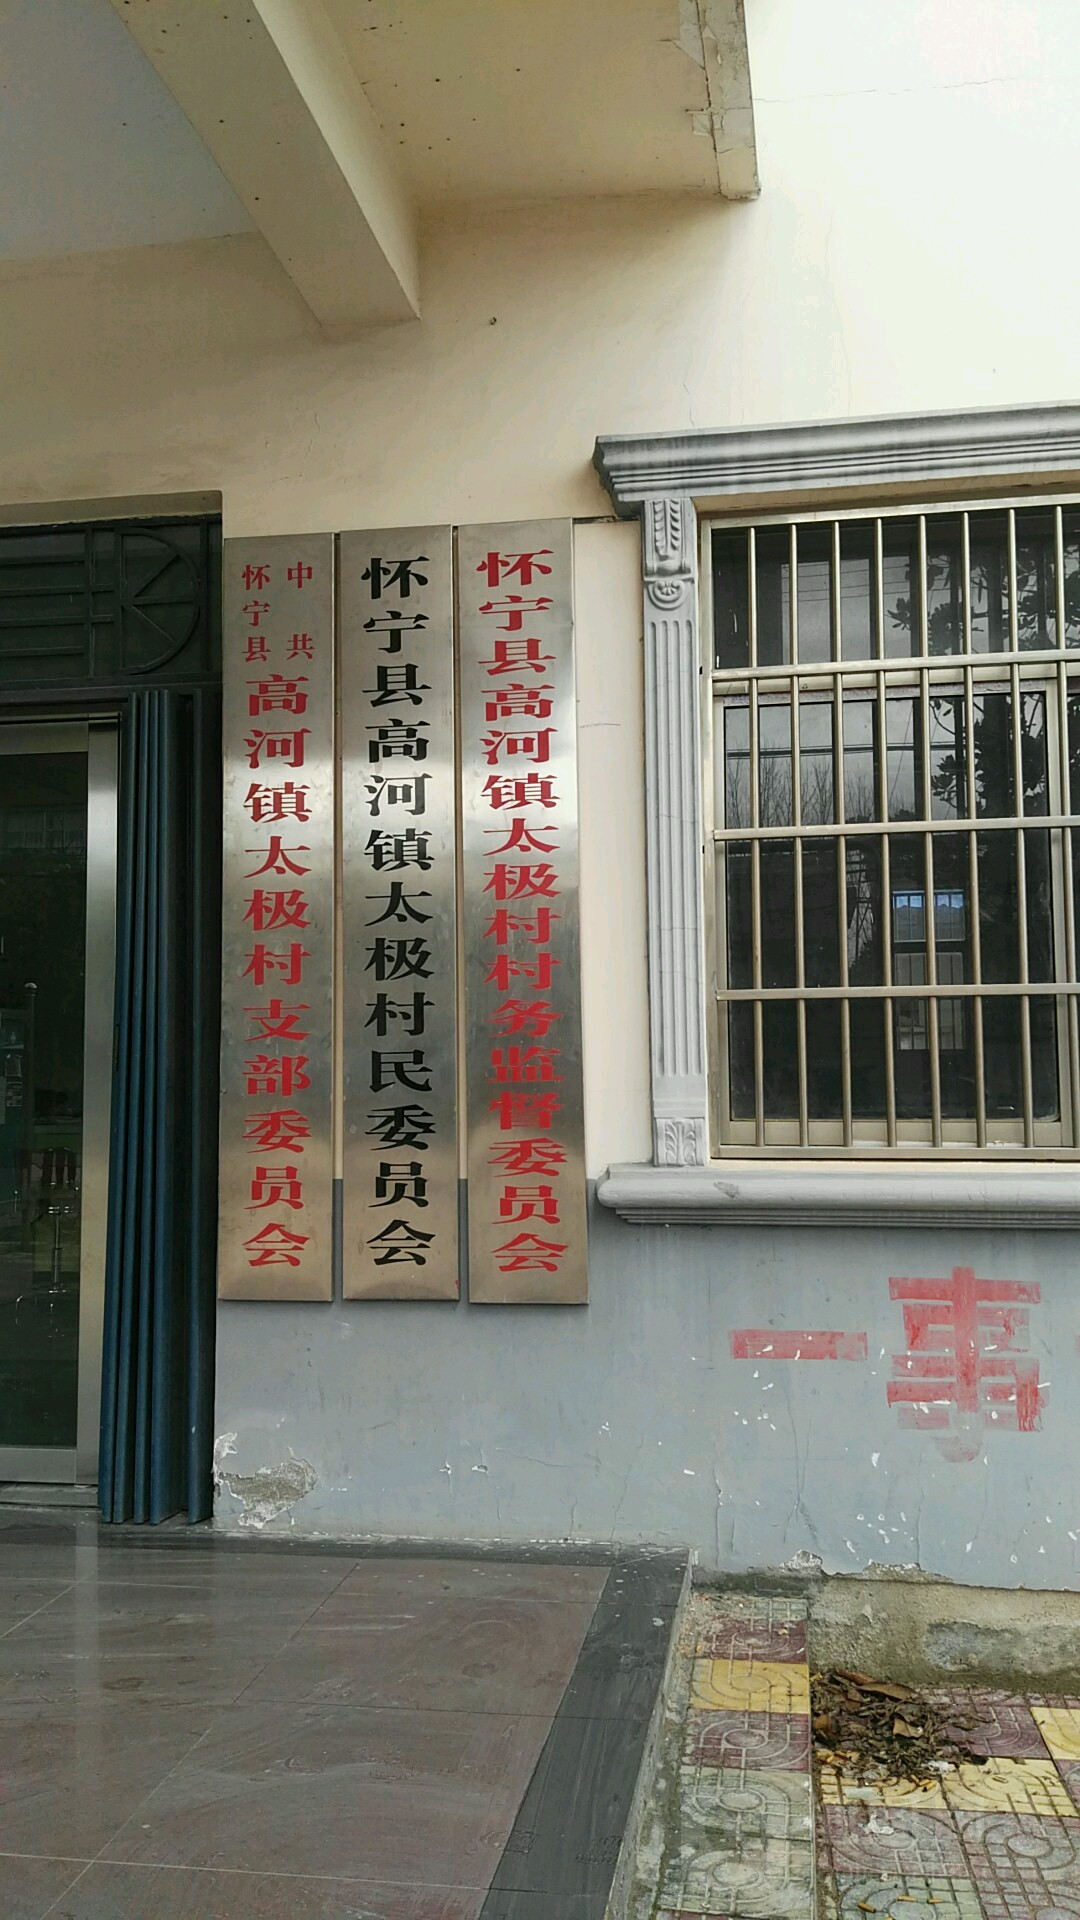 中共
怀宁县
高河镇太极村支部委员会
怀宁县高河镇太极村民委员会
怀宁县高河镇太极村村务监督委员会
一事